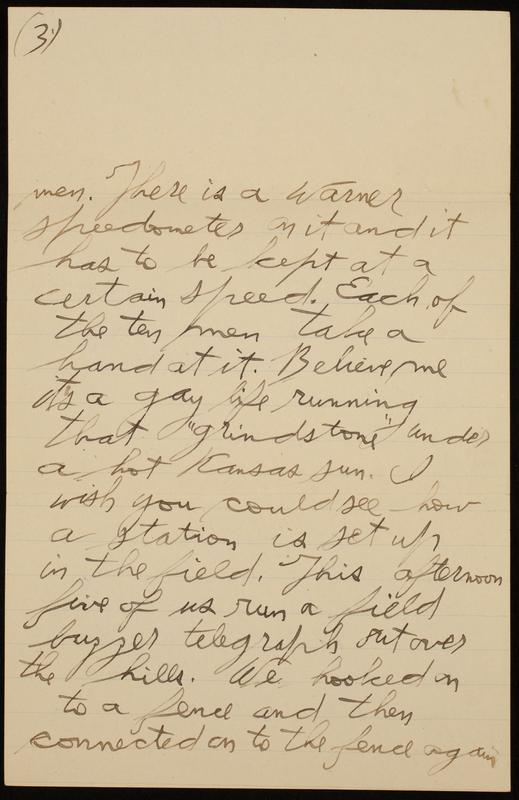 (3)
men. There is a Warner
speedometer on it and it
has to be kept at a
certain speed. Each of
the ten men take a
hand at it. Believe me
it's a gay life running
that "grindstone" under
a hot Kansas sun. I
wish you could see how
a station is set up
in the field. This afternoon
five of us run a field
buzzer telegraph out over
the hills. We hooked on
to a fence and then
connected on to the fence again